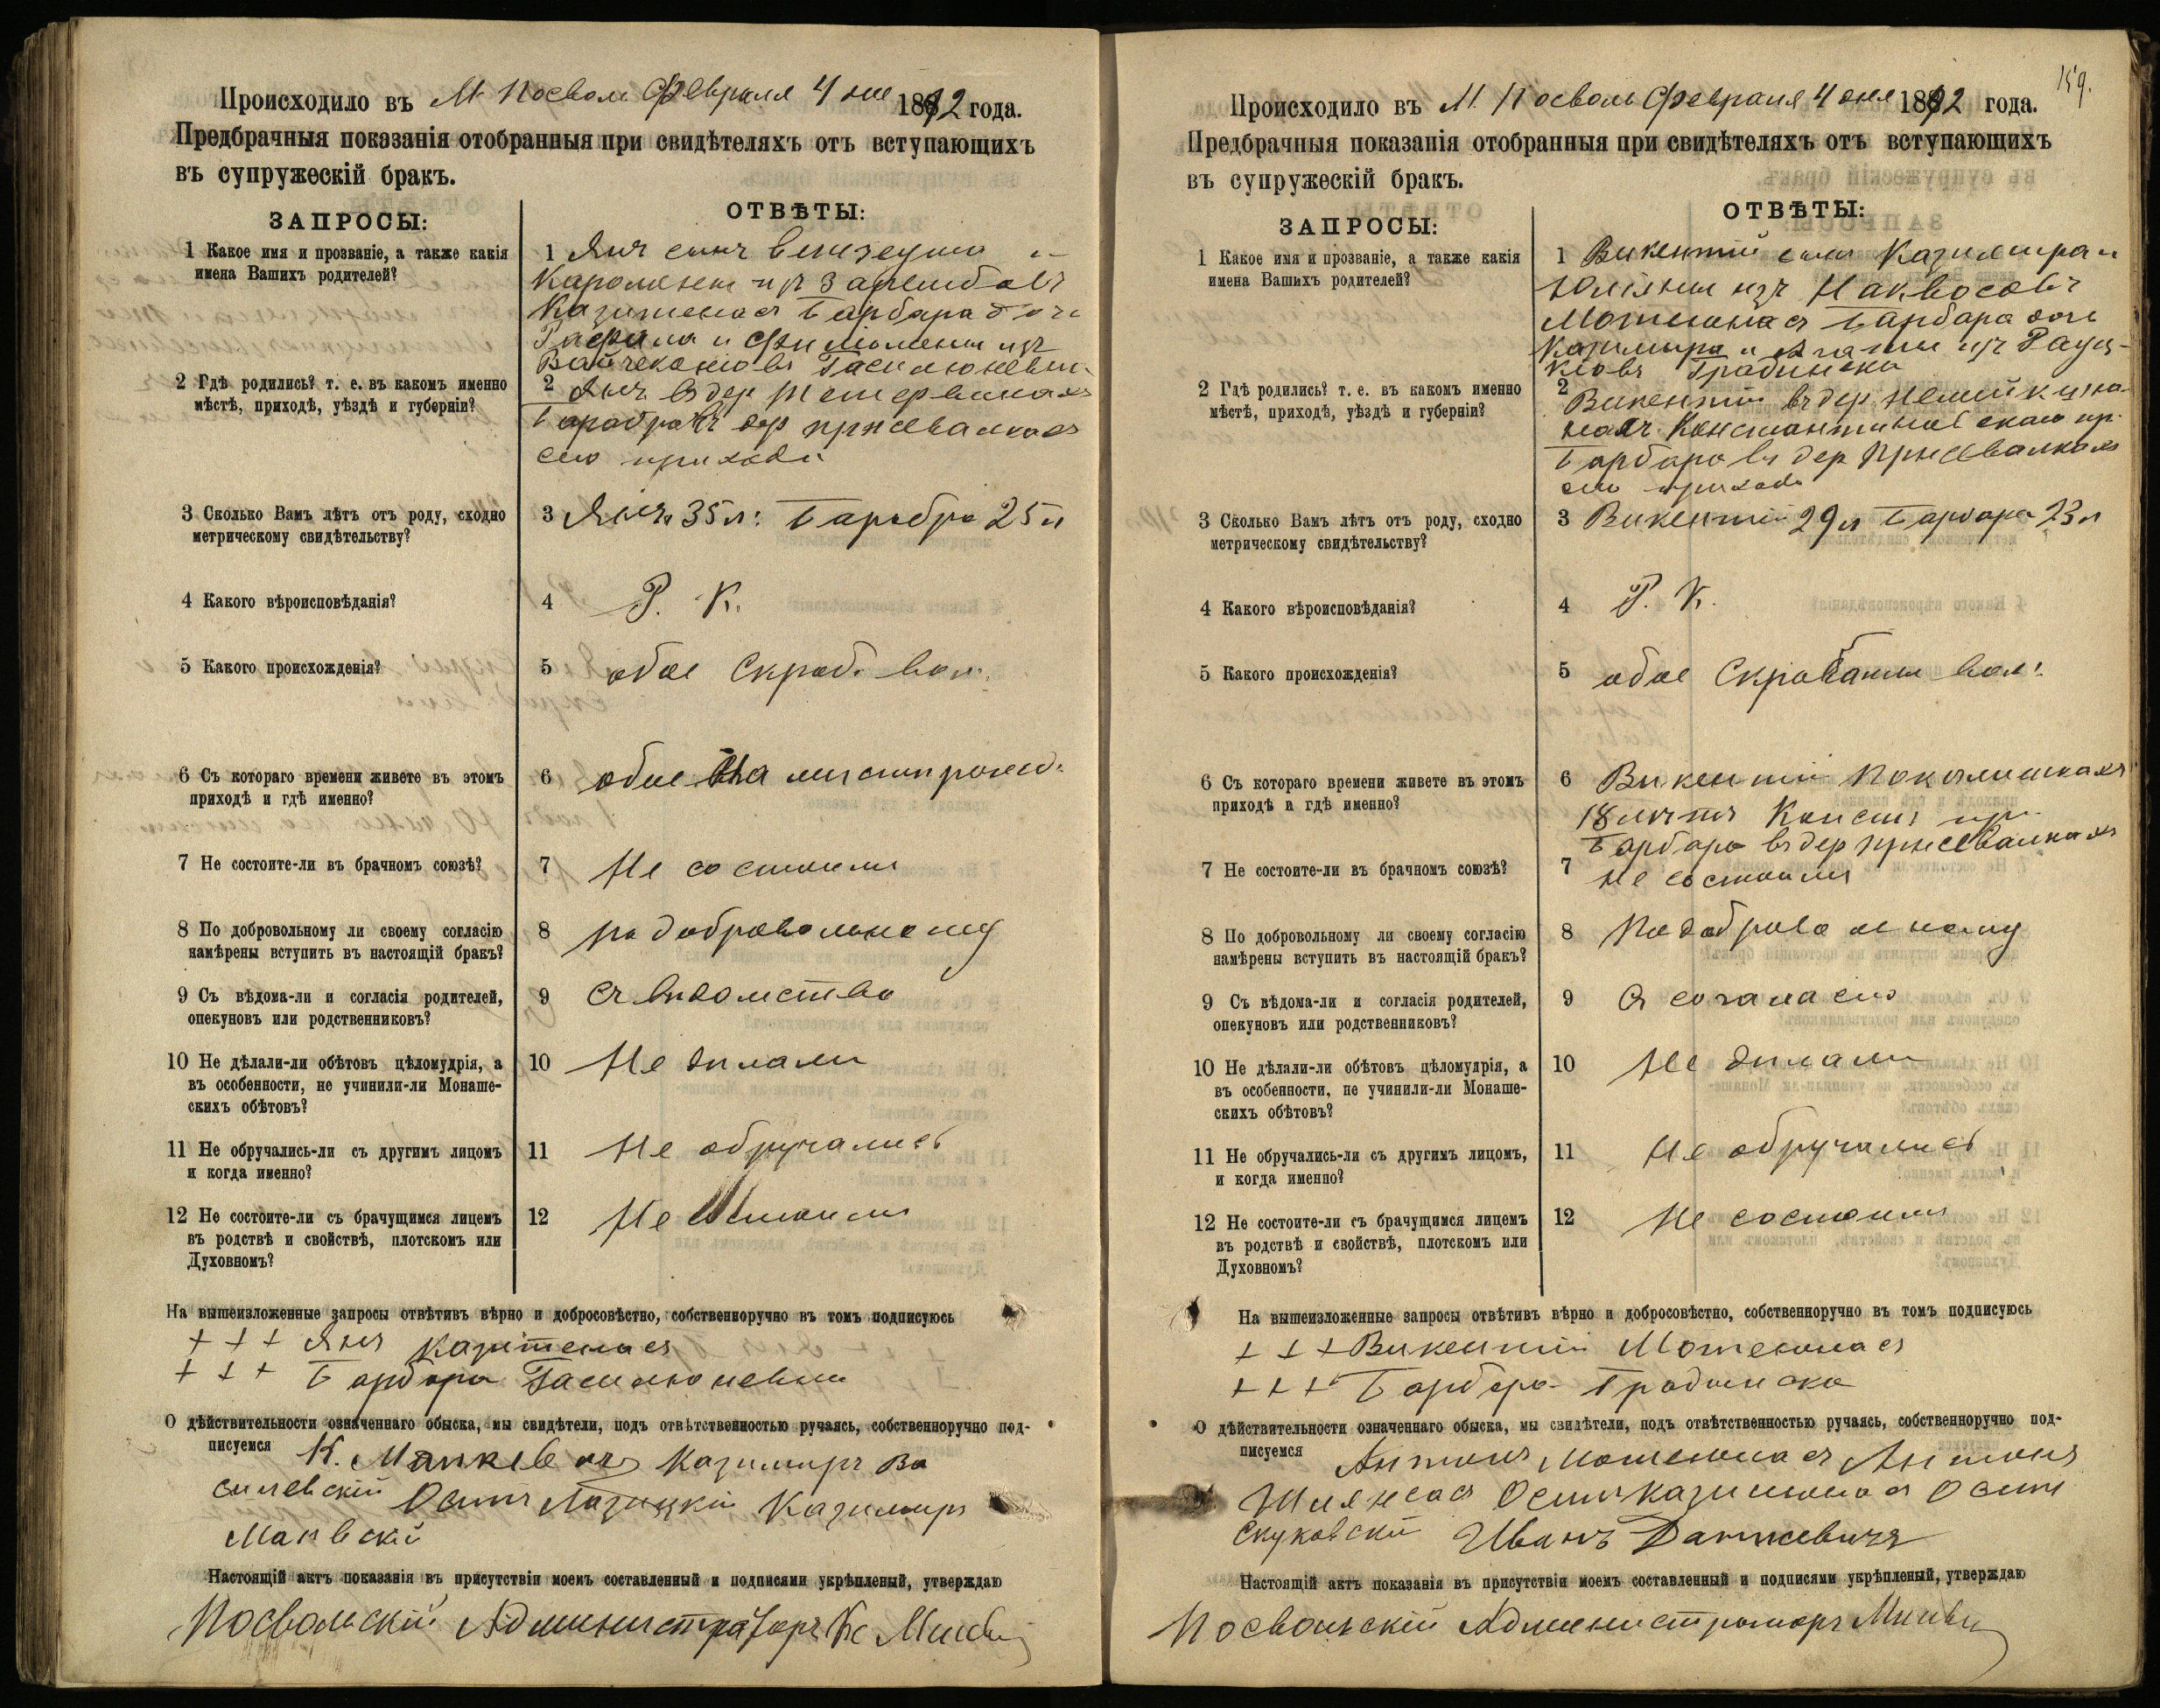 Происходило въ М. Посволь Февраля 4 дня 1892 года.
Предбрачныя показанія отобранныя при свидѣтеляхъ отъ вступающихъ
въ супружескій бракъ.
ЗАПРОСЫ:
ОТВѢТЫ:
1 Какое имя и прозваніе, а также какія
имена Вашихъ родителей?
1 Янъ сынъ Венцеуша и
Каролины изъ
Барбара дочь
и Филомены изъ
2 Гдѣ родились? т. е. въ какомъ именно
мѣстѣ, приходѣ, уѣздѣ и губерніи?
2 Янъ въ дер
Барбара въ дер
сего прихода
3 Сколько Вамъ лѣтъ отъ роду, сходно
метрическому свидѣтельству?
3 Янъ 35 л: Барбара 25 л
4 Какого вѣроисповѣданія?
4 Р. К.
5 Какого происхожденія?
5 обое Скроб. вол.
6 Съ котораго времени живете въ этомъ
приходѣ и гдѣ именно?
6 обое на мѣстѣ рожд.
7 Не состоите-ли въ брачномъ союзѣ?
7 Не состоимъ
8 По добровольному ли своему согласію
намѣрены вступить въ настоящій бракъ?
8 По добровольному
9 Съ вѣдома-ли и согласія родителей,
опекуновъ или родственниковъ?
9 Съ видомство
10 Не дѣлали-ли обѣтовъ цѣломудрія, а
въ особенности, не учинили-ли Монаше-
скихъ обѣтовъ?
10 Не дилали
11 Не обручались-ли съ другимъ лицомъ
и когда именно?
11 Не обручались
12 Не состоите-ли съ брачущимся лицемъ
въ родствѣ и свойствѣ, плотскомъ или
Духовномъ?
12 Не состоимъ
На вышеизложенные запросы отвѣтивъ вѣрно и добросовѣстно, собственноручно въ томъ подписуюсь
+ + + Янъ
+ + + Барбара
О дѣйствительности означеннаго обыска, мы свидѣтели, подъ отвѣтственностью ручаясь, собственноручно под-
писуемся К. Казимиръ Ва
силевскій Осипъ Казимиръ
Настоящій актъ показанія въ присутствіи моемъ составленный и подписями укрѣпленый, утверждаю
Посвольскій Администраторъ Кс
159.
Происходило въ М. Посволь Февраля 4 дня 1892 года.
Предбрачныя показанія отобранныя при свидѣтеляхъ отъ вступающихъ
въ супружескій бракъ.
ЗАПРОСЫ:
ОТВѢТЫ:
1 Какое имя и прозваніе, а также какія
имена Вашихъ родителей?
1 Викентій сынъ Казимира и
Юліяны изъ
Мотеюнасъ Барбара дочь
Казимира и Агаты изъ
Градинска
2 Гдѣ родились? т. е. въ какомъ именно
мѣстѣ, приходѣ, уѣздѣ и губерніи?
2 Викентій въ дер
Константиновскаго пр.
Барбара въ дер
сего прихода
3 Сколько Вамъ лѣтъ отъ роду, сходно
метрическому свидѣтельству?
3 Викентій 29 л Барбара 23 л
4 Какого вѣроисповѣданія?
4 Р. К.
5 Какого происхожденія?
5 обое вол:
6 Съ котораго времени живете въ этомъ
приходѣ а гдѣ именно?
6 Викентій
18 летъ Конст. пр.
Барбара въ дер
7 Не состоите-ли въ брачномъ союзѣ?
7 Не состоимъ
8 По добровольному ли своему согласію
намѣрены вступить въ настоящій бракъ?
8 По добровольному
9 Съ вѣдома-ли и согласія родителей,
опекуновъ или родственниковъ?
9
10 Не дѣлали-ли обѣтовъ цѣломудрія, а
въ особенности, не учинили-ли Монаше-
скихъ обѣтовъ?
10 Не дилали
11 Не обручались-ли съ другимъ лицомъ,
и когда именно?
11 Не обручались
12 Не состоите-ли съ брачущимся лицемъ
въ родствѣ и свойствѣ, плотскомъ или
Духовномъ?
12 Не состоимъ
На вышеизложенные запросы отвѣтивъ вѣрно и добросовѣстно, собственноручно въ томъ подписуюсь
+ + + Викентій Мотеюнасъ
+ + + Барбара Градинска
О дѣйствительности означеннаго обыска, мы свидѣтели, подъ отвѣтственностью ручаясь, собственноручно под-
писуемся Антонъ Мотеюнасъ Антонъ
Осипъ Осипъ
Иванъ
Настоящій актъ показанія въ присутствіи моемъ составленный и подписями укрѣпленый, утверждаю
Посвольскій Администраторъ